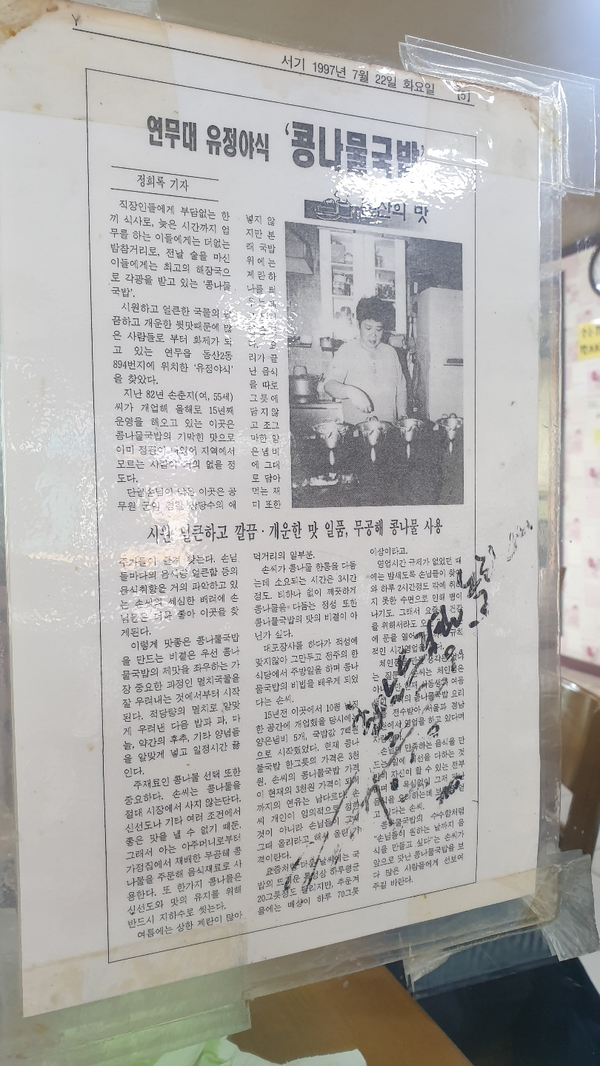 서기 1997년 7월 22일 화요일 [5]
연무대 유정야식 '콩나물국밥'
정희록 기자
산의 맛
직장인들에게 부담없는 한
끼 식사로, 늦은 시간까지 업
무를 하는 이들에게는 더없는
밤참거리로, 전날 술을 마신
이들에게는 최고의 해장국으
로 각광을 받고 있는 '콩나물
국밥'.
시원하고 얼큰한 국물의
끔하고 개운한 뒷맛때문에 많
은 사람들로 부터 화제가 되
고 있는 연무읍 동산2동
894번지에 위치한 '유정야식'
을 찾았다.
지난 82년 손춘지(여, 55세)
씨가 개업해 올해로 15년째
운영을 해오고 있는 이곳은
콩나물국밥의 기막힌 맛으로
이미 정평이 지역에서
모르는 사람이 거의 없을 정
도다.
단골손님이 많은 이곳은 공
무원 군인 경찰 상당수의 애
넣지 않
지만 본
래 국밥
위에는
계란 하
나를
리가 끝
난 음식
을 따로
그릇에
담지 않
고 조그
마한 양
은냄비
에 그대
로 담아
먹는 재
미 또한
시원 얼큰하고 깔끔·개운한 맛 일품, 무공해 콩나물 사용
주가들이 찾는다. 손님
들마다의 음식맛 얼큰함 등의
음식취향은 거의 파악하고 있
는 손씨의 세심한 배려에 손
님들은 더욱 좋아 이곳을 찾
게된다.
이렇게 맛좋은 콩나물국밥
을 만드는 비결은 우선 콩나
물국밥의 제맛을 좌우하는 가
장 중요한 과정인 멸치국물을
잘 우려내는 것에서부터 시작
된다. 적당량의 멸치로 알맞
게 우려낸 다음 밥과 파, 마
늘, 약간의 후추, 기타 양념들
을 알맞게 넣고 일정시간 끓
인다.
주재료인 콩나물 선택 또한
중요하다. 손씨는 콩나물을
절대 시장에서 사지 않는단다.
신선도나 기타 여러 조건에서
좋은 맛을 낼 수 없기 때문.
그래서 아는 아주머니로부터
가정집에서 재배한 무공해 콩
나물을 주문해 음식재료로 사
용한다. 또 한가지 콩나물은
신선도와 맛의 유지를 위해
반드시 지하수로 씻는다.
여름에는 상한 계란이 많아
먹거리의 일부분.
손씨가 콩나물 한통을 다듬
는데 소요되는 시간은 3시간
정도. 티하나 없이 깨끗하게
콩나물을 다듬는 정성 또한
콩나물국밥의 맛의 비결이 아
닌가 싶다.
대포장사를 하다가 적성에
맞지않아 그만두고 전주의 한
식당에서 주방일을 하며 콩나
물국밥의 비법을 배우게 되었
다는 손씨.
15년전 이곳에서 10평 남짓
한 공간에 개업했을 당시에
양은냄비 5개, 국밥값 7백원
으로 시작했었다. 현재 콩나
물국밥 한그릇의 가격은 3천
원, 손씨의 콩나물국밥 가격
이 현재의 3천원 가격이 되기
까지의 연유는 남다르다. 손
씨 개인이 임의적으로
것이 아니라 손님들이
그때 올리라고 해서 올린 가
격이란다.
요즘처럼 더운 날씨에는 국
하루평균
20그릇정도 팔리지만, 추운겨
울에는 매상이 하루 70그릇
이상이라고.
영업시간 규제가 없었던 때
에는 밤새도록 손님들이 찾아
와 하루 2시간정도 밖에 취하
지 못한 수면으로 인해 병이
나기도. 그래서 요즘은 건강
을 위해서라도
에 문을 열어 규칙
적인 시간
음식을 만
드는
'손님들이 원하는 날까지 음
식을 만들고 싶다'는 손씨가
앞으로 맛난 콩나물국밥을 보
다 많은 사람들에게 선보여
주길 바란다.